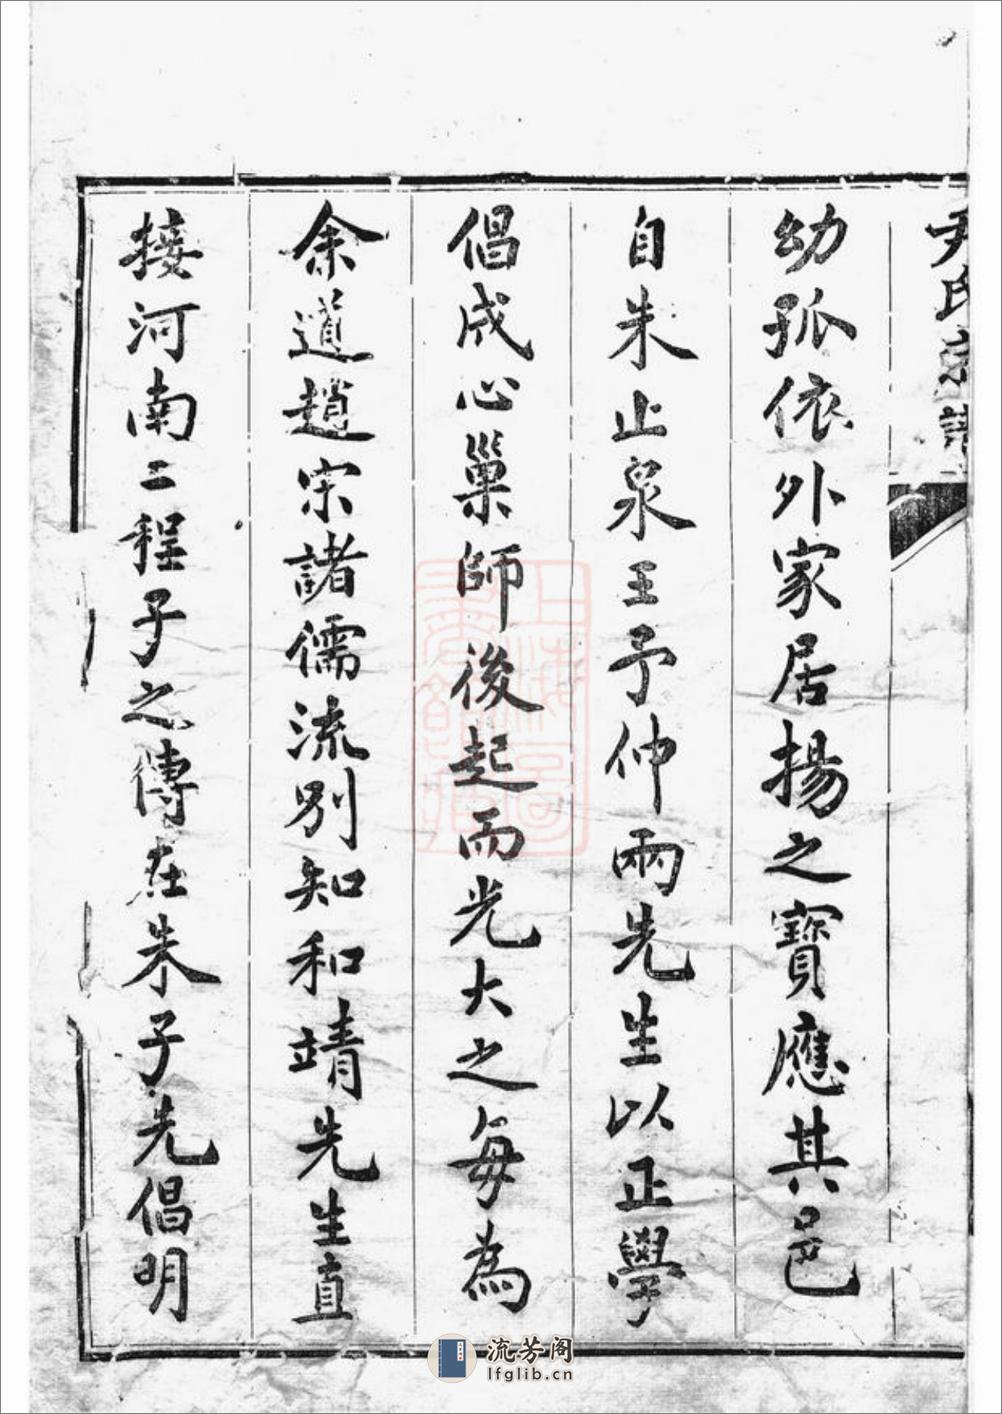 尹氏宗譜
幼孤依外家居揚之寶應其邑
自朱止泉王予仲兩先生以正學
倡成心巢師後起而光大之每為
余道趙宋諸儒流別知和靖先生直
接河南二程子之傳在朱子先倡明
流芳阁
lfglib.cn